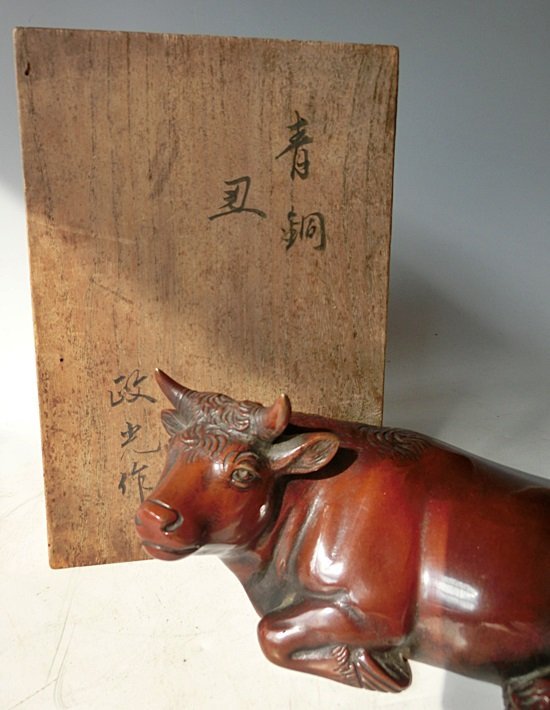 青銅
丑
政光作